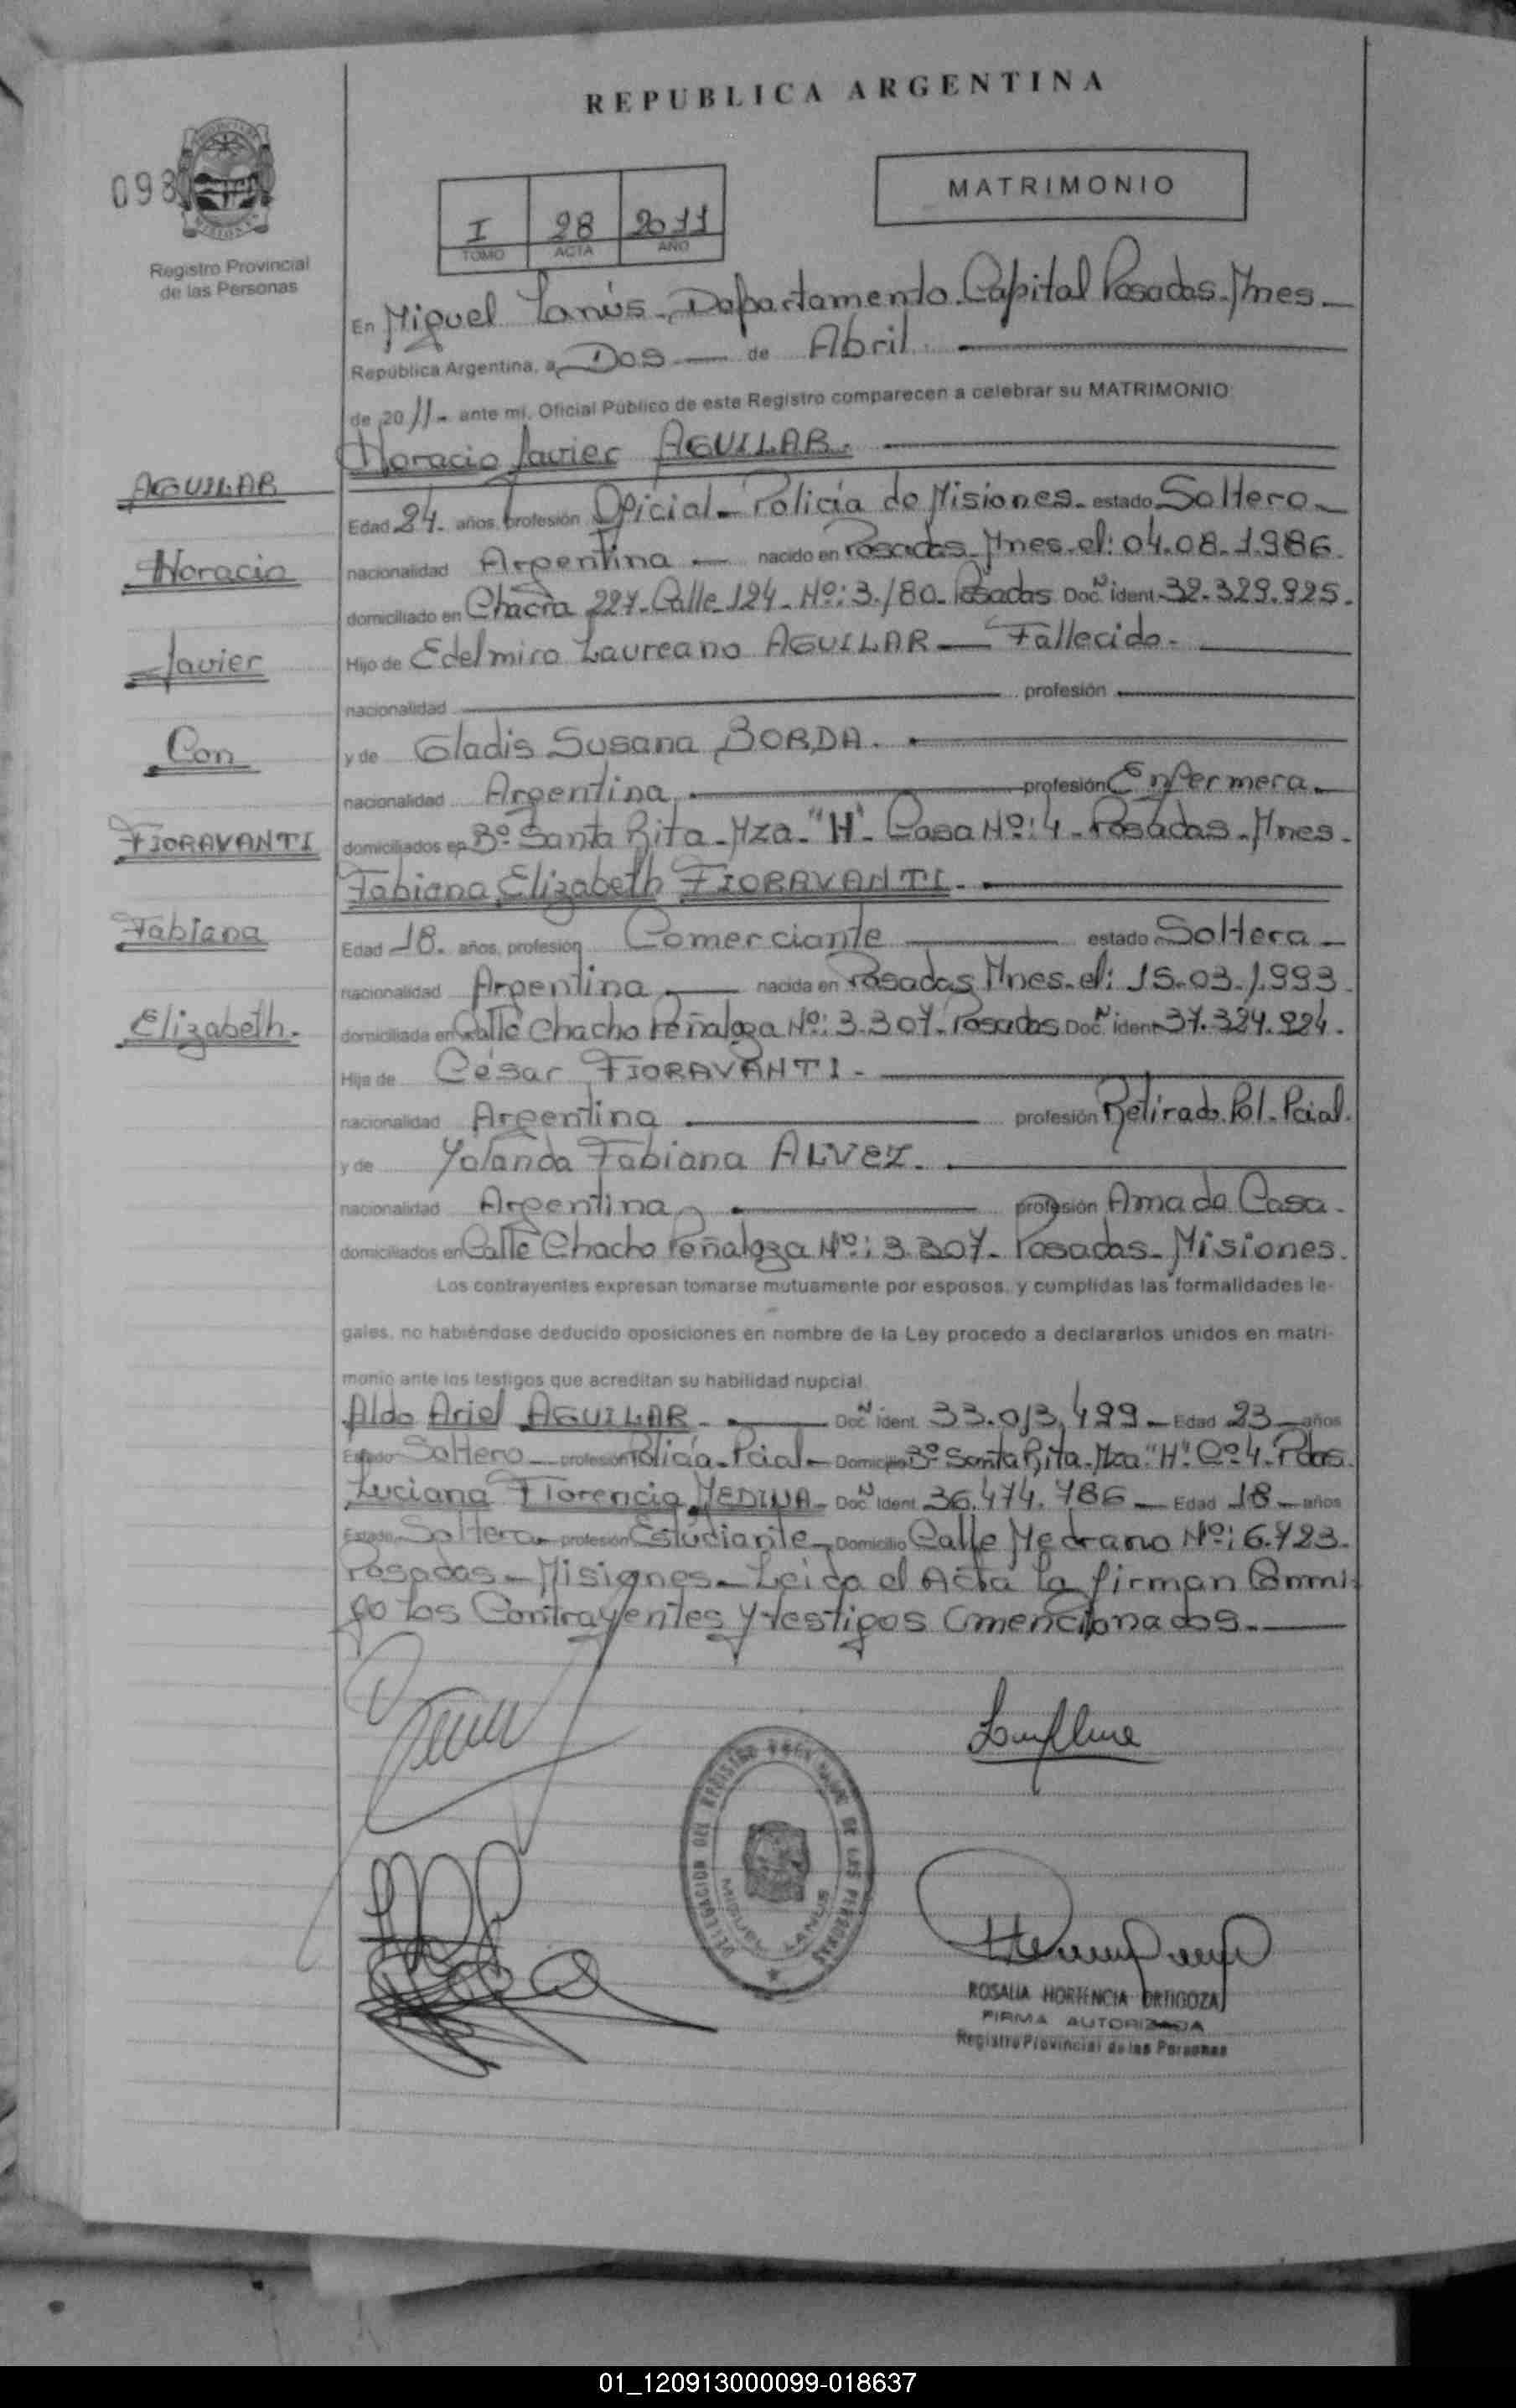 REPUBLICA ARGENTINA
MATRIMONIO
093
Registro Provincial
de las Personas
I 28 2011
TOMO ACTA AÑO
En Miguel Lanús - Departamento Capital Posadas - Mnes -
República Argentina, a Dos de Abril
de 2011 - ante mi, Oficial Público de este Registro comparecen a celebrar su MATRIMONIO
Horacio Javier AGUILAR.
AGUILAR
Edad 24. años, profesión Oficial - Policía de Misiones - estado Soltero -
Horacio
nacionalidad Argentina nacido en Posadas - Mnes. el: 04.08.1986.
domiciliado en Chacra 227 - Calle 124 - Nº: 3./80 - Posadas Doc. N ident. 32.329.925.
Javier
Hijo de Edelmiro Laureano AGUILAR - Fallecido -
nacionalidad profesión
Con
y de Gladis Susana BORDA.
nacionalidad Argentina profesión Enfermera.
FIORAVANTI
domiciliados en Bº Santa Rita - Mza - "H" - Casa Nº: 4 - Posadas - Mnes -
Fabiana Elizabeth FIORAVANTI -
Fabiana
Edad 18. años, profesión Comerciante estado Soltera -
nacionalidad Argentina nacida en Posadas Mnes. el: 15.03.1993.
Elizabeth.
domiciliada en Calle Chacho Peñaloza Nº: 3.307 - Posadas Doc. N ident. 37.324.924.
Hija de César FIORAVANTI -
nacionalidad Argentina profesión Retirado Pol. Pcial.
y de Yolanda Fabiana ALVEZ.
nacionalidad Argentina profesión Ama de Casa.
domiciliados en Calle Chacho Peñaloza Nº: 3.307 - Posadas - Misiones.
Los contrayentes expresan tomarse mutuamente por esposos, y cumplidas las formalidades le-
gales, no habiéndose deducido oposiciones en nombre de la Ley procedo a declararlos unidos en matri-
monio ante los testigos que acreditan su habilidad nupcial
Aldo Ariel AGUILAR - Doc. N ident. 33.013.499 - Edad 23 años
Estado Soltero - profesión Policía - Pcial - Domicilio Bº Santa Rita - Mza "H" Cº 4 - Pdas.
Luciana Florencia MEDINA - Doc. N Ident. 36.474.786 - Edad 18 - años
Estado Soltera - profesión Estudiante - Domicilio Calle Medrano Nº: 6.723 -
Posadas - Misiones - Leida el Acta la firman Conmi-
go los Contrayentes y testigos mencionados.
DELEGACION DEL REGISTRO PROVINCIAL DE LAS PERSONAS
MIGUEL LANUS
ROSALIA HORTENCIA ORTIGOZA
FIRMA AUTORIZADA
Registro Provincial de las Personas
01_120913000099-018637